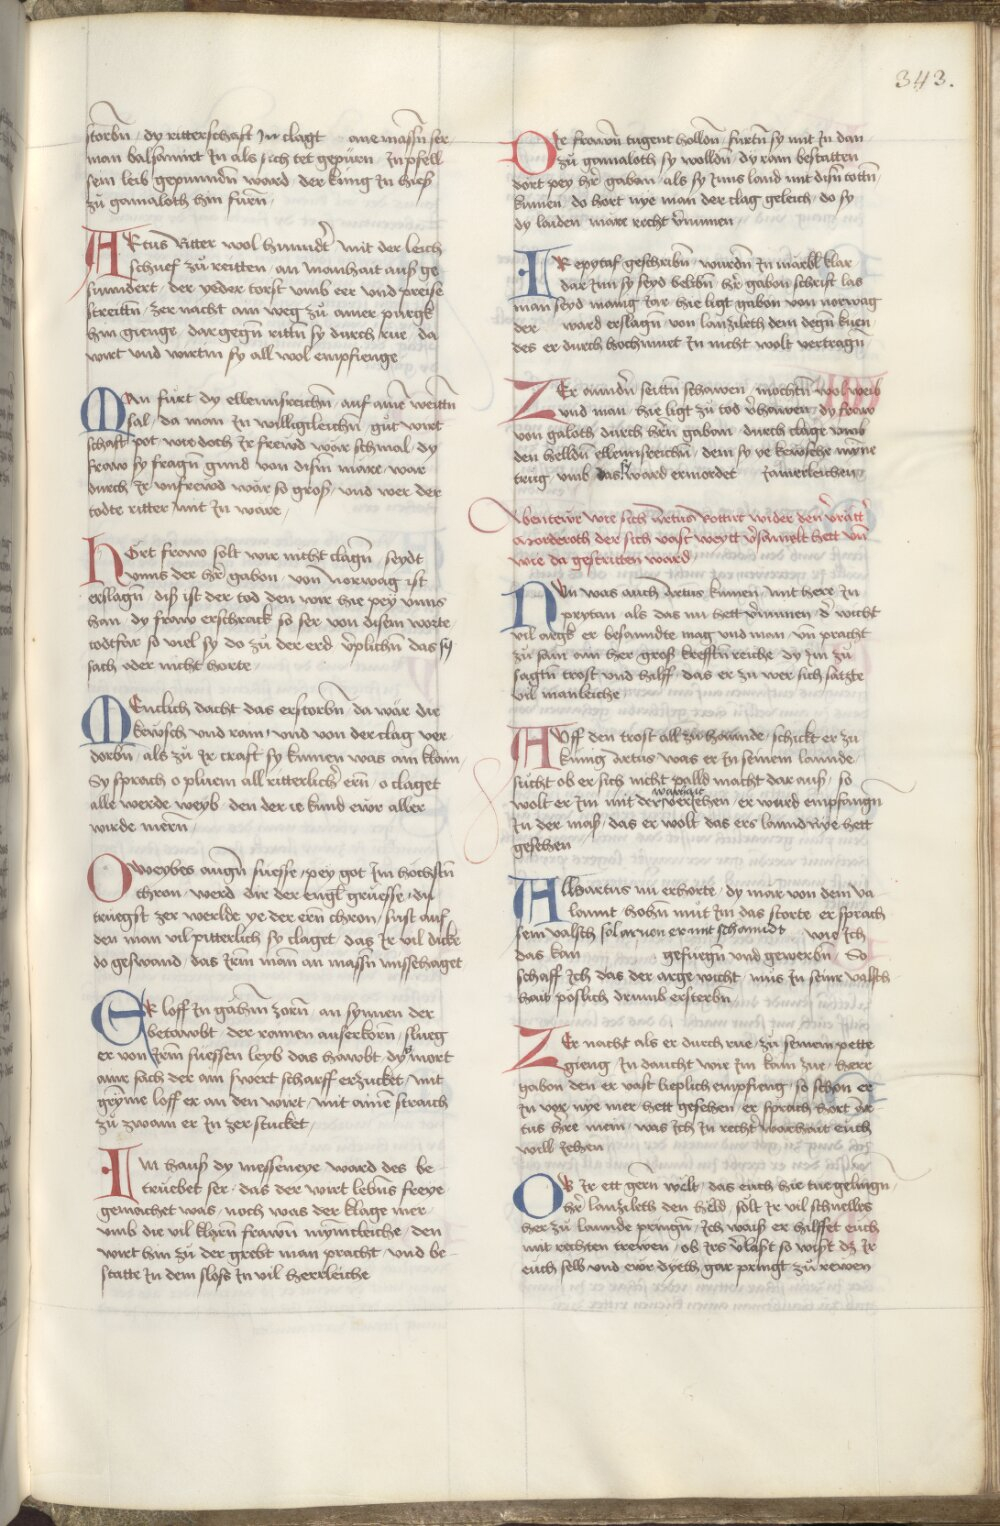 343.
storbn̄ / dy ritterschaft In clagt ane massn̄ ser
man balsamirt In als sich tet gepürn̄ / In pfell
sein leib gepunndn̄ ward / der kunig In hieß
zu gamaloth hin fürn̄ /
ARtus Ritter wol hunndt̄ mit der leich
schuef zu reitten / an manhait auß ge
sunndert / der yeder torst umb eer und preise
streittn̄ / zer nacht ain weg zu ainer purgk
hin gienge / dar gegn̄ rittn̄ sy durch rue / da
wirt und wirtin sy all wol empfienge
MAn fürt dy ellennsreichn̄ / auf ainē weittn̄
sal / da man In willigkleichn̄ gut wirt
schaft pot / wie doch Ir frewd wär schmal / dy
fraw sy fragn̄ gund von disen märe / war
durch Ir unfrewd wär so groß / und wer der
todte ritter mit In ware /
HOrt fraw solt wir nicht clagn̄ / seydt
unns der her̄ gabon / von Norwag ist
erslagn̄ / diß ist der tod den wir hie pey unns
han / dy fraw erschrack so ser von disem worte
todtfar so viel sy do zu der erd v̄plichn̄ das sy
sach oder nicht horte
MEnlich dacht das erstorbn̄ / da wär die
kewsch und rain / und von der clag ver
dorbn̄ / als zu Ir craft sy kumen was ain klain /
Sy sprach o pluem all ritterlichr̄ ern̄ / o claget
alle werde weyb / den der ie kund ewr aller
wirde mern̄ /
O weybes augn̄ suesse / pey got Im höchstn̄
thron / werd dir der engl̄ gruesse / du
truegst zer werlde ye der ern̄ chron / sust auf
den man vil pitterlich sy claget / das Ir vil dicke
do geswand / das Irm man an massn̄ missehaget
ER loff In gähm zorn̄ / an synnen der
betawbt / der rainen auserkorn̄ / slueg
er von Irm suessen leyb das hawbt / dyß mort
ainr sach der ain swert scharff erzucket / mit
gryme loff er an den wirt / mit ainē straich
zu zwain er In zer stucket /
IM hauß dy messeneye ward des be
truebet ser / das der wirt lebns freye
gemachet was / noch was der klage mer /
umb die vil klarn̄ frawn̄ mynnicleiche / den
wirt hin zu der grebt man pracht / und be
statte In dem sloß In vil herrleiche
DEr frawn̄ tugent hollen / furtn̄ sy mit In dan
zu gamaloth sy wolldn̄ / dy rain bestatten
dort pey hr̄ gaban / als sy Inns land mit disn̄ tottn̄
kumen / do hort nye man der clag geleich / do sy
dy laiden märe recht v̄numen
IR epytaf geschribn̄ / wurdn̄ In märbl̄ klar
dar Inn sy seyd belibn̄ / hr̄ gabon schrift las
man seyd manig Jar / hie ligt gabon von norwag
der ward erslagn̄ / von lanzileth dem degn̄ kuen
des er durch hochmuet In nicht wolt vertragn̄
ZEr anndn̄ seittn̄ schawen / mochtn̄ wol weib
und man / hie ligt zu tod v̄hawen / dy fraw
von galoth durch hr̄n gaban / durch clage umb
den helldn̄ ellennsreichn̄ / dem sy ye kewsche myne
trug / umb das sy ward ermordet Iamerleichen /
Abentewr wie sich Artus Rottirt wider den v̄rättr̄
Morderoth der sich vast weytt v̄samelt hett vn̄
wie da gestritten ward
NUn was auch Artus kumen / mit herr In
preytan / als das nu hett v̄numen / d̄ wicht
vil argk er besanndte mag und man / vn̄ pracht
zu sam ain her groß krefftn̄ reiche / dy Im zu
sagtn̄ trost und hilff / das er zu wer sich satzte
vil manleiche
AUff den trost all zu hannde / schickt er zu
kunig Artus / was er In seinem lannde /
sucht ob er sich nicht palld macht dar auß / so
wolt er Im mit der warhait versehen / er wurd empfangn̄
In der maß / das er wolt das ers lannd nye hett
gesehen
ALls artus nu erhorte / dy mär von dem va
lannt / hohn̄ mut Im das storte / er sprach
sein valsch sol arnen er mit schannd wie Ich
das kan gefuegn̄ und gewerbn̄ / So
schaff Ich das der arge wicht / mus In seiner valsch
hait poslich drumb ersterbn̄
ZEr nacht als er durch rue / zu seinem pette
gieng / In daucht wie Im kam zue / herr
gabon den er vast lieplich empfieng / so schon er
In vor nye mer hett gesehen / er sprach hort Ar
tus hr̄e mein / was Ich In rechtr̄ warhait euch
will Iehen
OB Ir ett gern̄ welt / das euch hie tue gelingn̄ /
hr̄ lanzileth den held / sölt Ir vil schnelles
her zu lannde pringn̄ / Ich waiß er hilffet euch
mit rechten trewen / ob Irs v̄last so wist dz Ir
euch selb und ewr dyeth gar pringt zu rewen